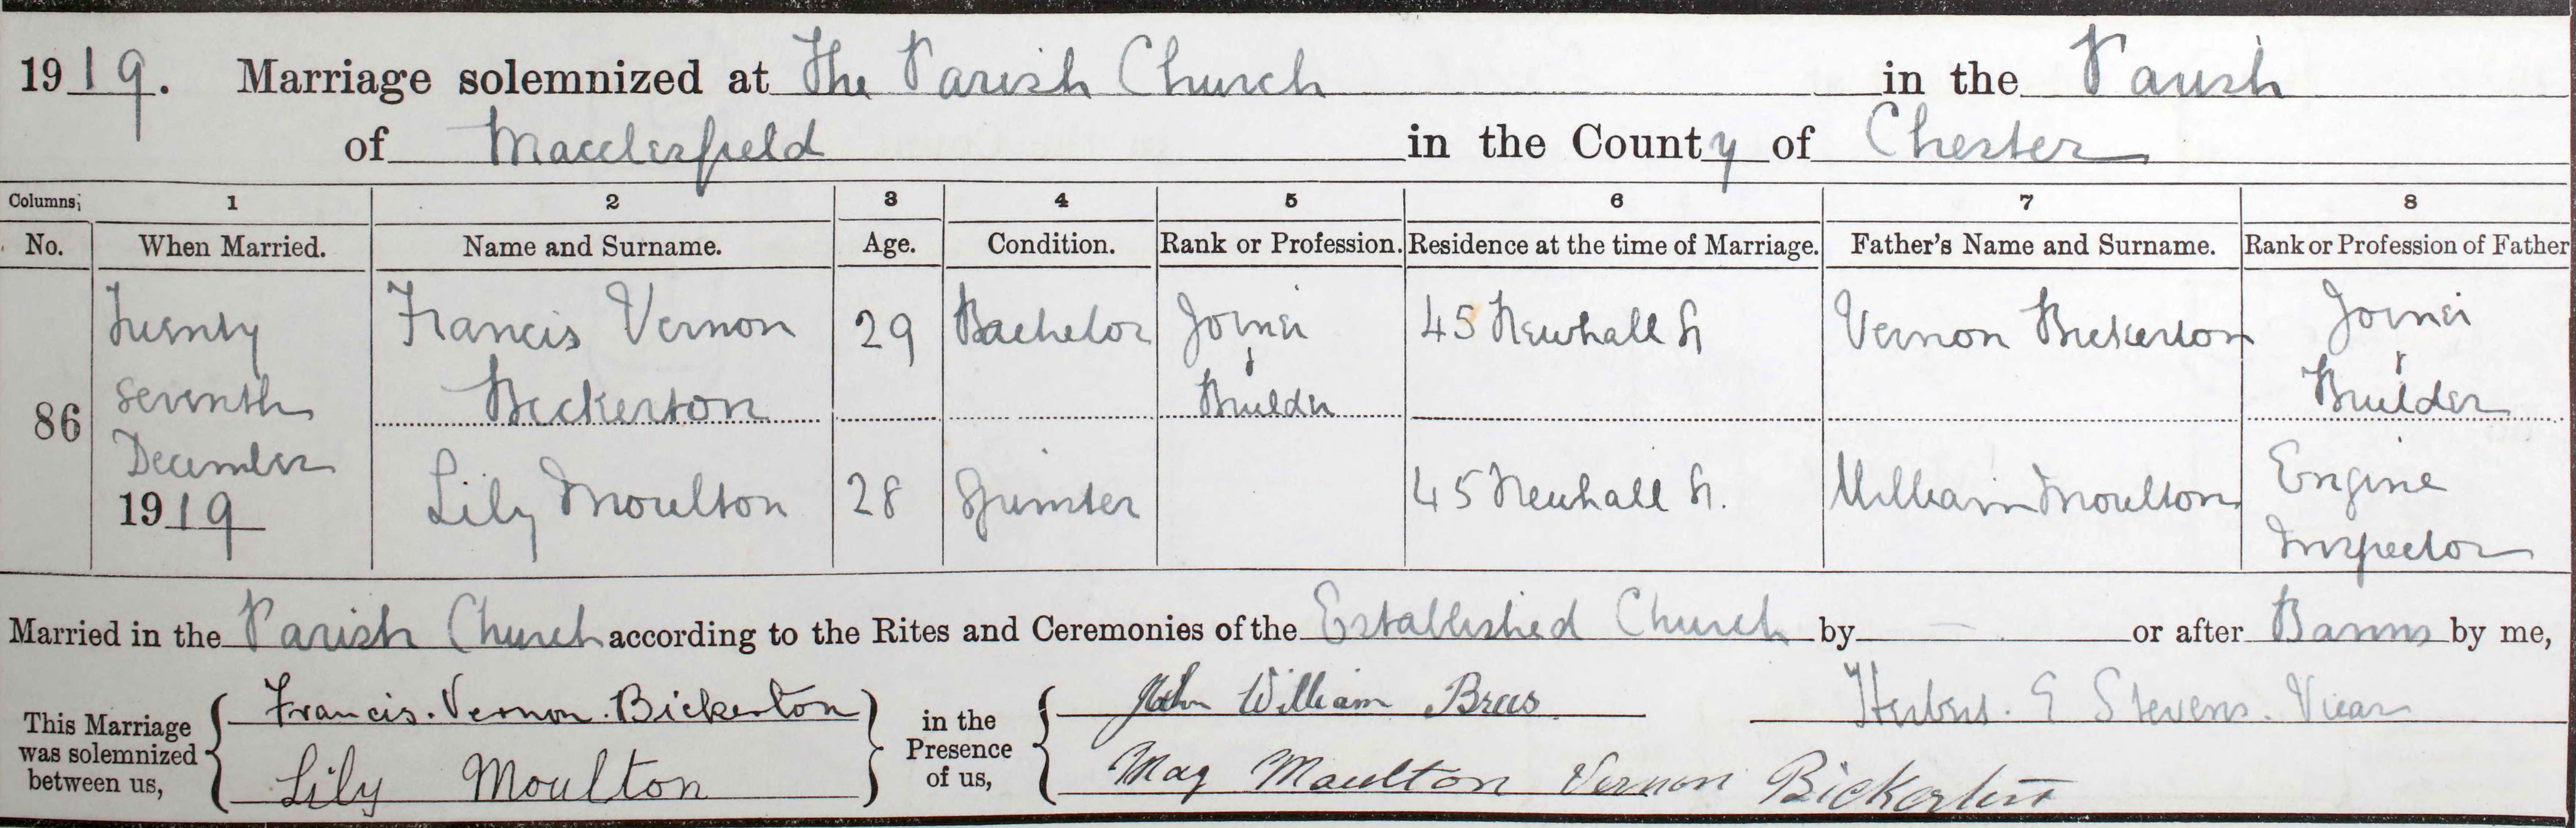 1919. Marriage solemnized at The Parish Church in the Parish
of Macclesfield in the County of Chester
Columns; 1 2 3 4 5 6 7 8
No. When Married. Name and Surname. Age. Condition. Rank or Profession. Residence at the time of Marriage. Father's Name and Surname. Rank or Profession of Father
86
Twenty
seventh
December
1919
Francis Vernon
Bickerton
29
Bachelor
Joiner
&
Builder
45 Newhall St
Vernon Bickerton
Joiner
&
Builder
Lily Moulton
28
Spinster
45 Newhall St.
William Moulton
Engine
Inspector
Married in the Parish Church according to the Rites and Ceremonies of the Established Church by — or after Banns by me,
This Marriage
was solemnized
between us,
Francis. Vernon. Bickerton
Lily Moulton
in the
Presence
of us,
John William
May Moulton Vernon Bickerton
Herbert. E Stevens. Vicar